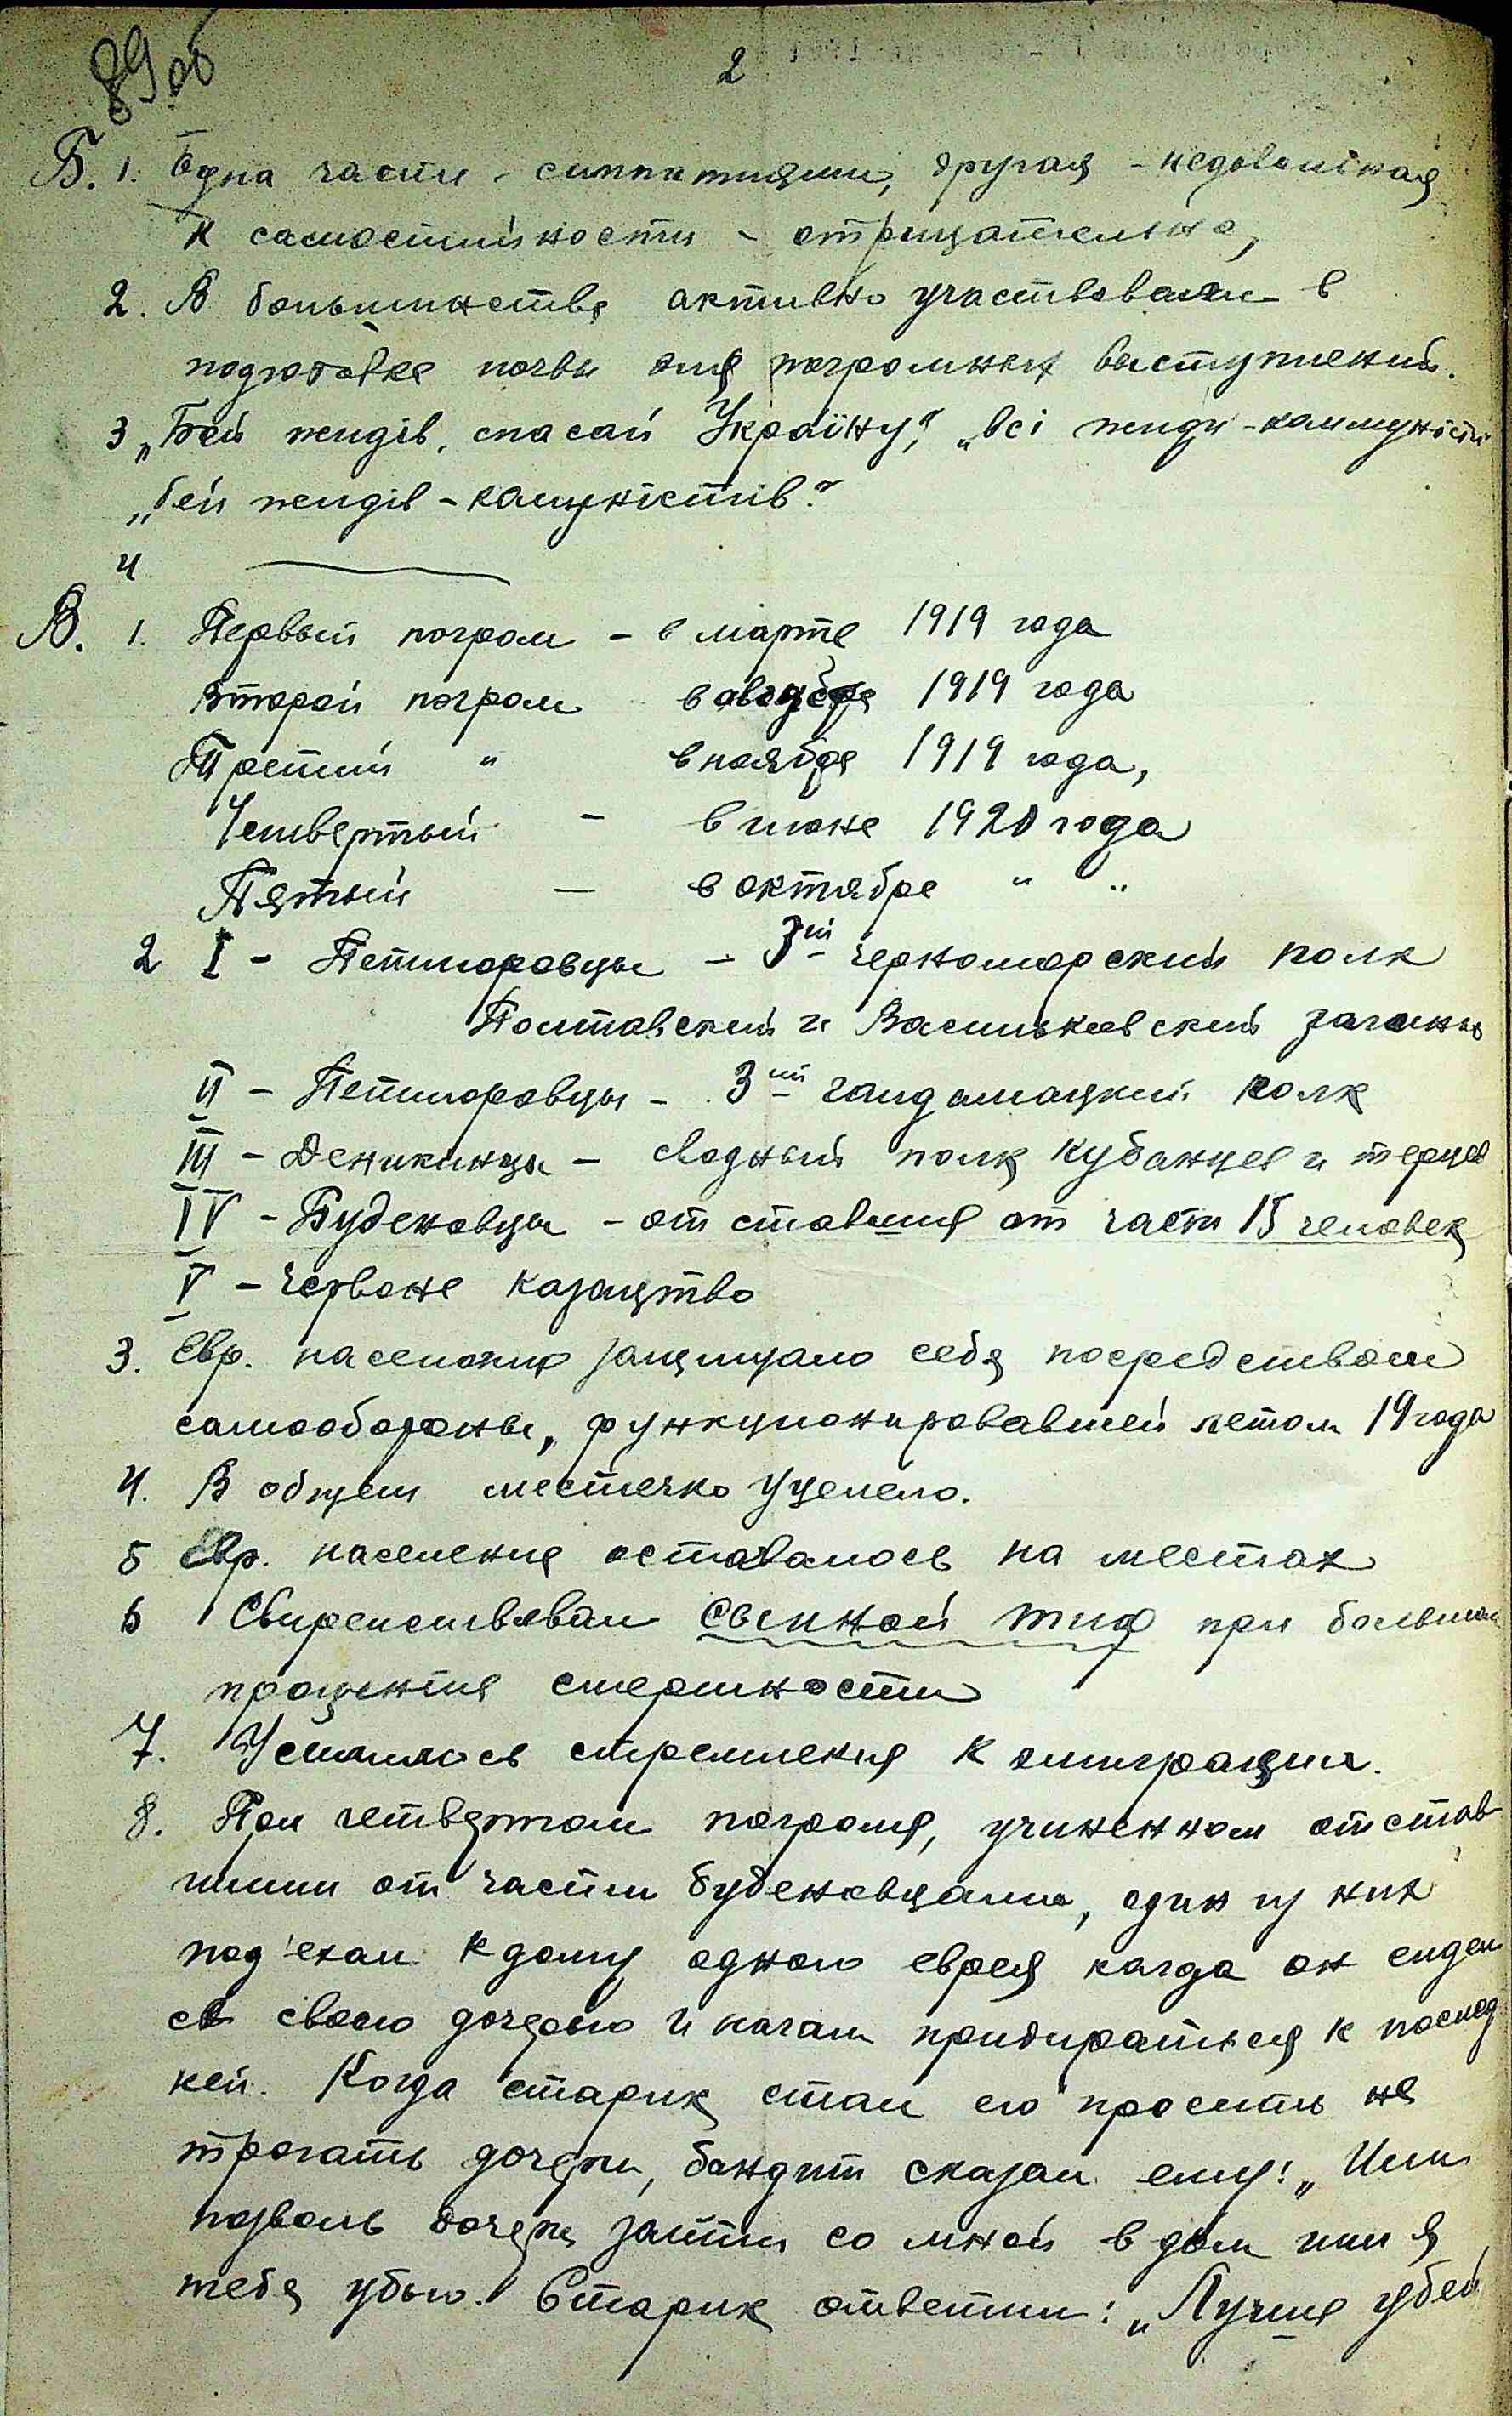 89об
2
Б. 1. Одна часть - симпатиями, другая - недовольная
к самостийности - отрицательно,
2. В большинстве активно участвовали в
подготовке почвы для погромных выступлений.
3 „Бей жидів, спасай Україну", „всі жиди - коммуністи"
„бей жидів - комуністів."
4
В. 1. Первый погром - в марте 1919 года
Второй погром в 1919 года
Третий " в ноябре 1919 года,
Четвертый - в июне 1920 года
Пятый - в октябре " "
2 I - Петлюровцы - 3ий черноморский полк
Полтавский и Васильковский загоны
II - Петлюровцы - 3ий гайдамацкий полк
III - Деникинцы - сводный полк кубанцев и терцев
IV - Буденовцы - отставшие от части 15 человек
V - Червоне казацтво
3. Евр. население защищало себя посредством
самообороны, функционировавшей летом 19 года
4. В общем местечко уцелело.
5 Евр. население оставалось на местах
6 Свирепствовал сыпной тиф при большом
проценте смертности
7. Усилилось стремление к эмиграции.
8. При четвертом погроме, учиненном отстав-
шими от части буденовцами, один из них
под'ехал к дому одного еврея когда он сидел
со своею дочерью и начал придираться к послед
ней. Когда старик стал его просить не
трогать дочери, бандит сказал ему: „Или
позволь дочери зайти со мной в дом или я
тебя убью." Старик ответил: „Лучше убей